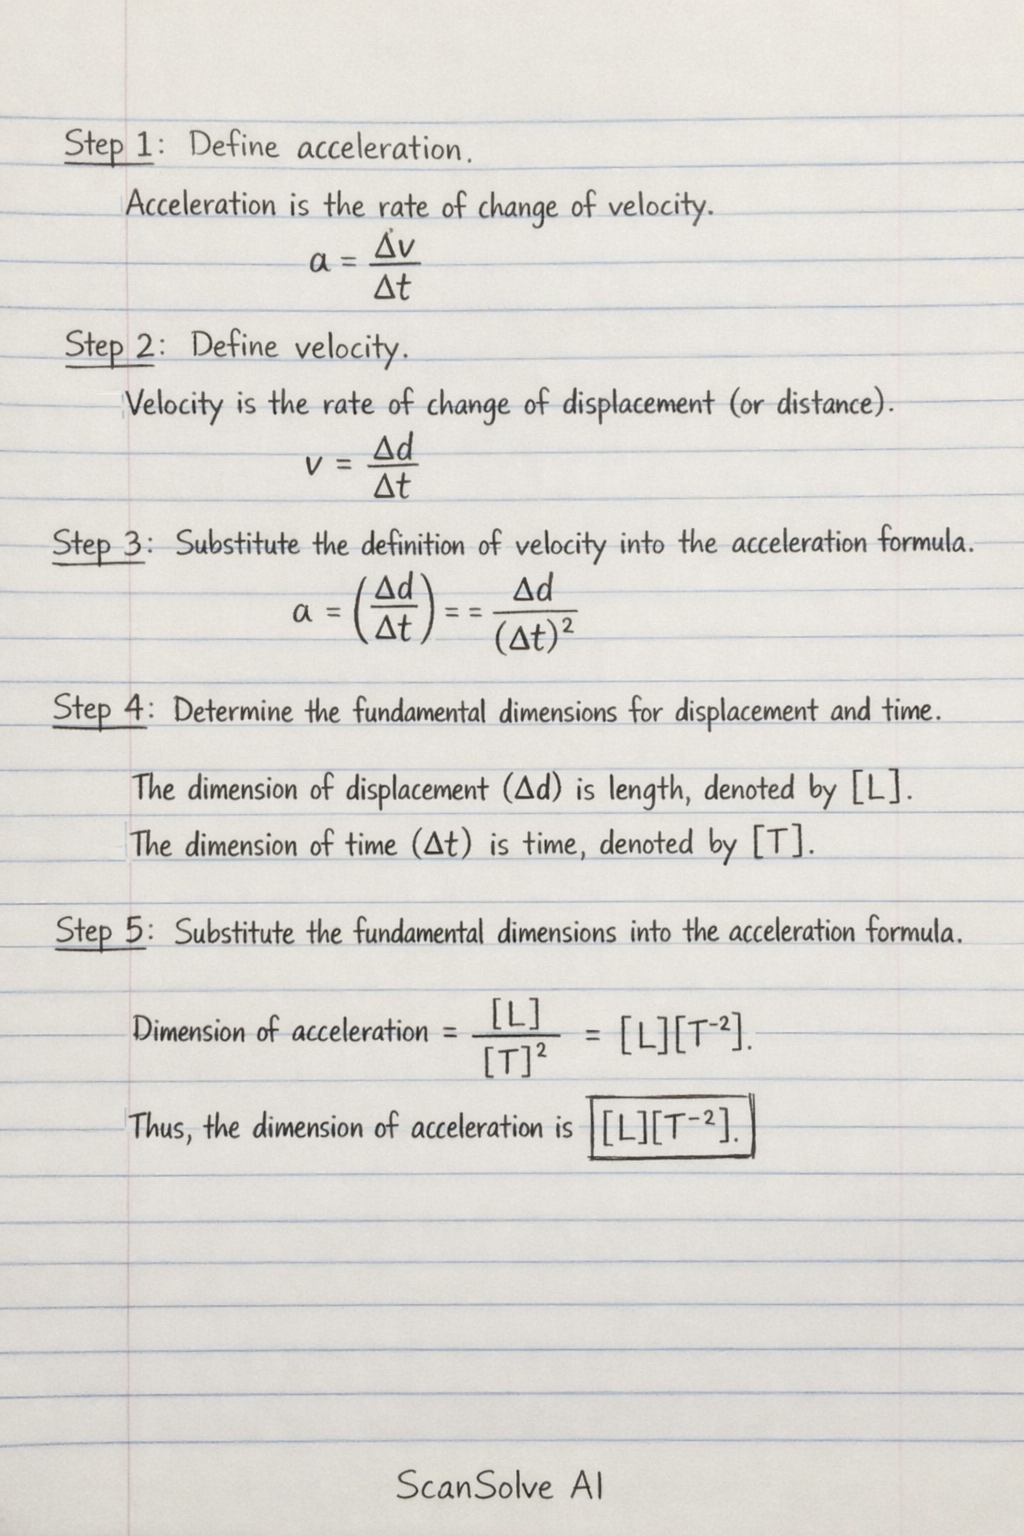 Step 1: Define acceleration.
Acceleration is the rate of change of velocity.
a = Δv/Δt
Step 2: Define velocity.
Velocity is the rate of change of displacement (or distance).
v = Δd/Δt
Step 3: Substitute the definition of velocity into the acceleration formula.
a = (Δd/Δt) = = Δd/(Δt)²
Step 4: Determine the fundamental dimensions for displacement and time.
The dimension of displacement (Δd) is length, denoted by [L].
The dimension of time (Δt) is time, denoted by [T].
Step 5: Substitute the fundamental dimensions into the acceleration formula.
Dimension of acceleration = [L]/[T]² = [L][T⁻²].
Thus, the dimension of acceleration is [L][T⁻²].
ScanSolve AI